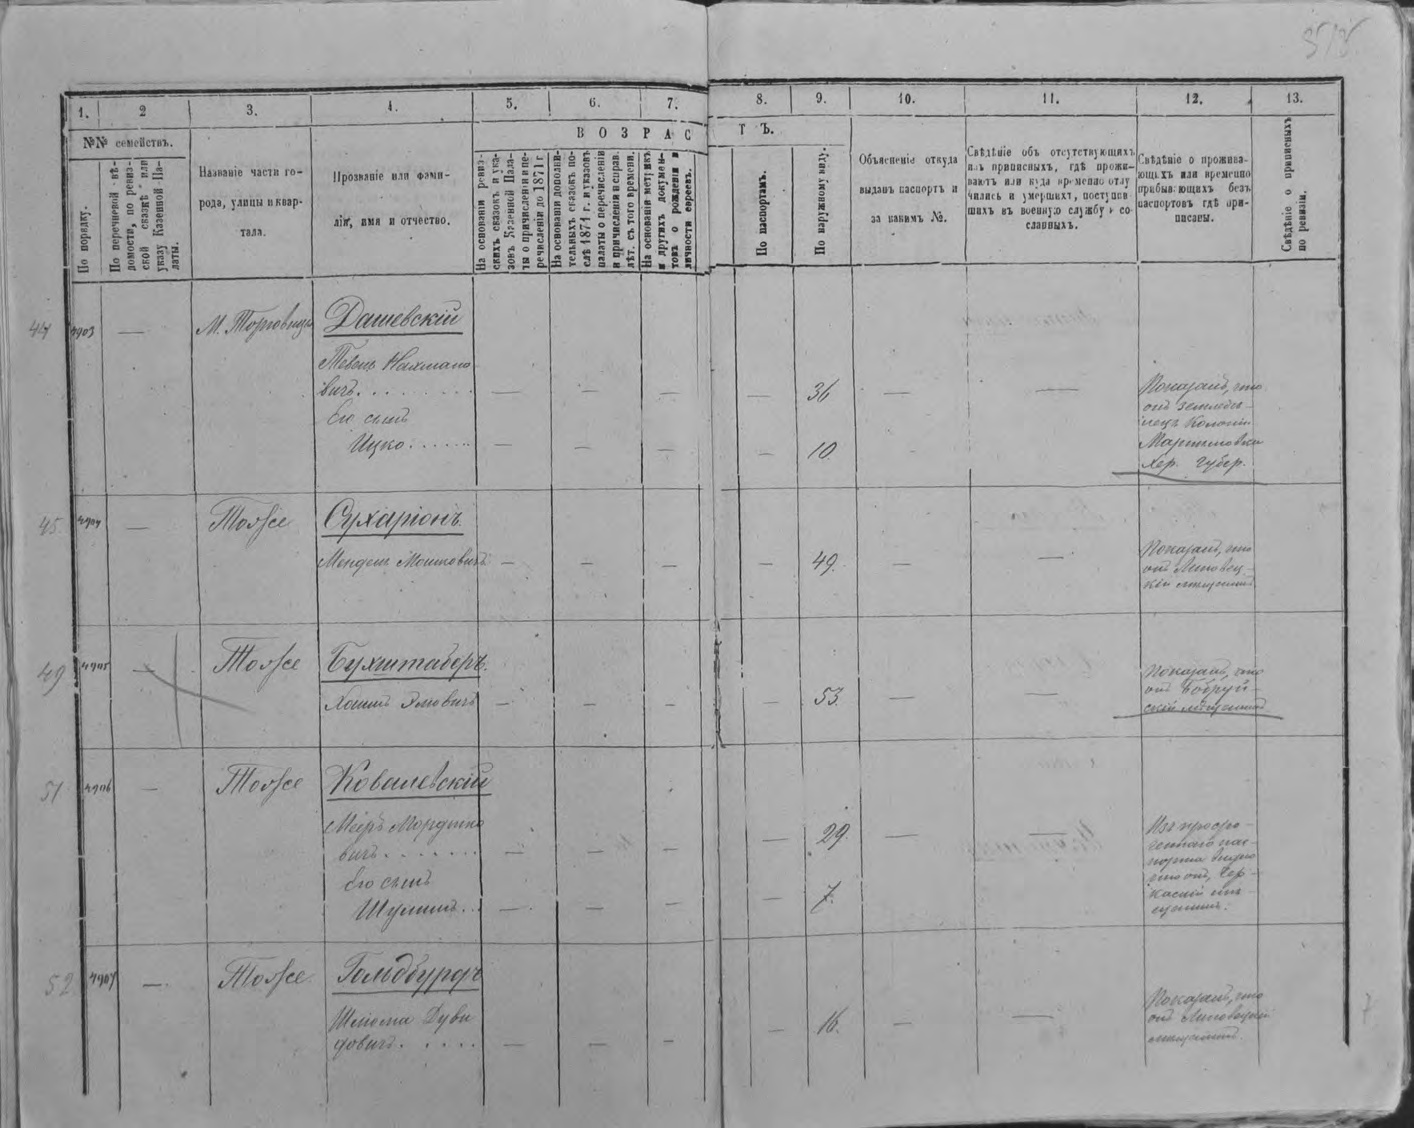 1.
2
3.
4.
5.
6.
7.
8.
9.
10.
11.
12.
13.
№№ семействъ.
По порядку.
По перечневой вѣ-
домости, по ревиз-
ской сказкѣ или
указу Казенной Па-
латы.
Названіе части го-
рода, улицы и квар-
тала.
Прозваніе или фами-
лія, имя и отчество.
ВОЗРАСТЪ.
На основаніи ревиз-
скихъ сказокъ и ука-
зовъ Казенной Пала-
ты о причисленіи и пе-
речисленіи до 1871 г.
На основаніи дополни-
тельныхъ сказокъ по-
слѣ 1871 г. и указовъ
палаты о перечисленіи
и причисленіи и исправ.
лѣт. съ того времени.
На основаніи метрикъ
и другихъ докумен-
товъ о рожденіи и
личности евреевъ.
По паспортамъ.
По наружному виду.
Объясненіе откуда
выданъ паспортъ и
за какимъ №.
Свѣдѣніе объ отсутствующихъ
изъ приписныхъ, гдѣ прожи-
ваютъ или куда временно отлу
чились и умершихъ, поступив-
шихъ въ военную службу и со-
сланныхъ.
Свѣдѣніе о прожива-
ющихъ или временно
прибывающихъ безъ
паспортовъ гдѣ при-
писаны.
Свѣдѣніе о приписныхъ
по ревизіи.
44 4903 — М. Торговица Дашевскій
Нахмано
вичъ. — — — — 36 — — Показалъ, что
онъ земледѣ-
лецъ Колоніи
Его сынъ
Ицко — — — — 10
Хер. Губер.
45 4904 — Тоже Сухаріонъ
Мендель Мошковичъ — — — — 49. — — Показалъ, что
онъ Липовец-
кій мѣщанинъ
49 4905 — Тоже Бухштаберъ
Хаимъ — — — — 53. — — Показалъ, что
онъ Бобруй-
скій мѣщанинъ
51 4906 — Тоже Ковалевскій
Меіръ Мордко
вичъ — — — — 29. — — Изъ просро-
ченнаго пас-
порта видно
что онъ, Чер-
касскій мѣ-
щанинъ.
Его сынъ
Шулимъ — — — — 7.
52 4907 — Тоже Гольдбурдъ
Шлиома Дуви
довичъ — — — — 16. — — Показалъ, что
онъ Липовецкій
мѣщанинъ.